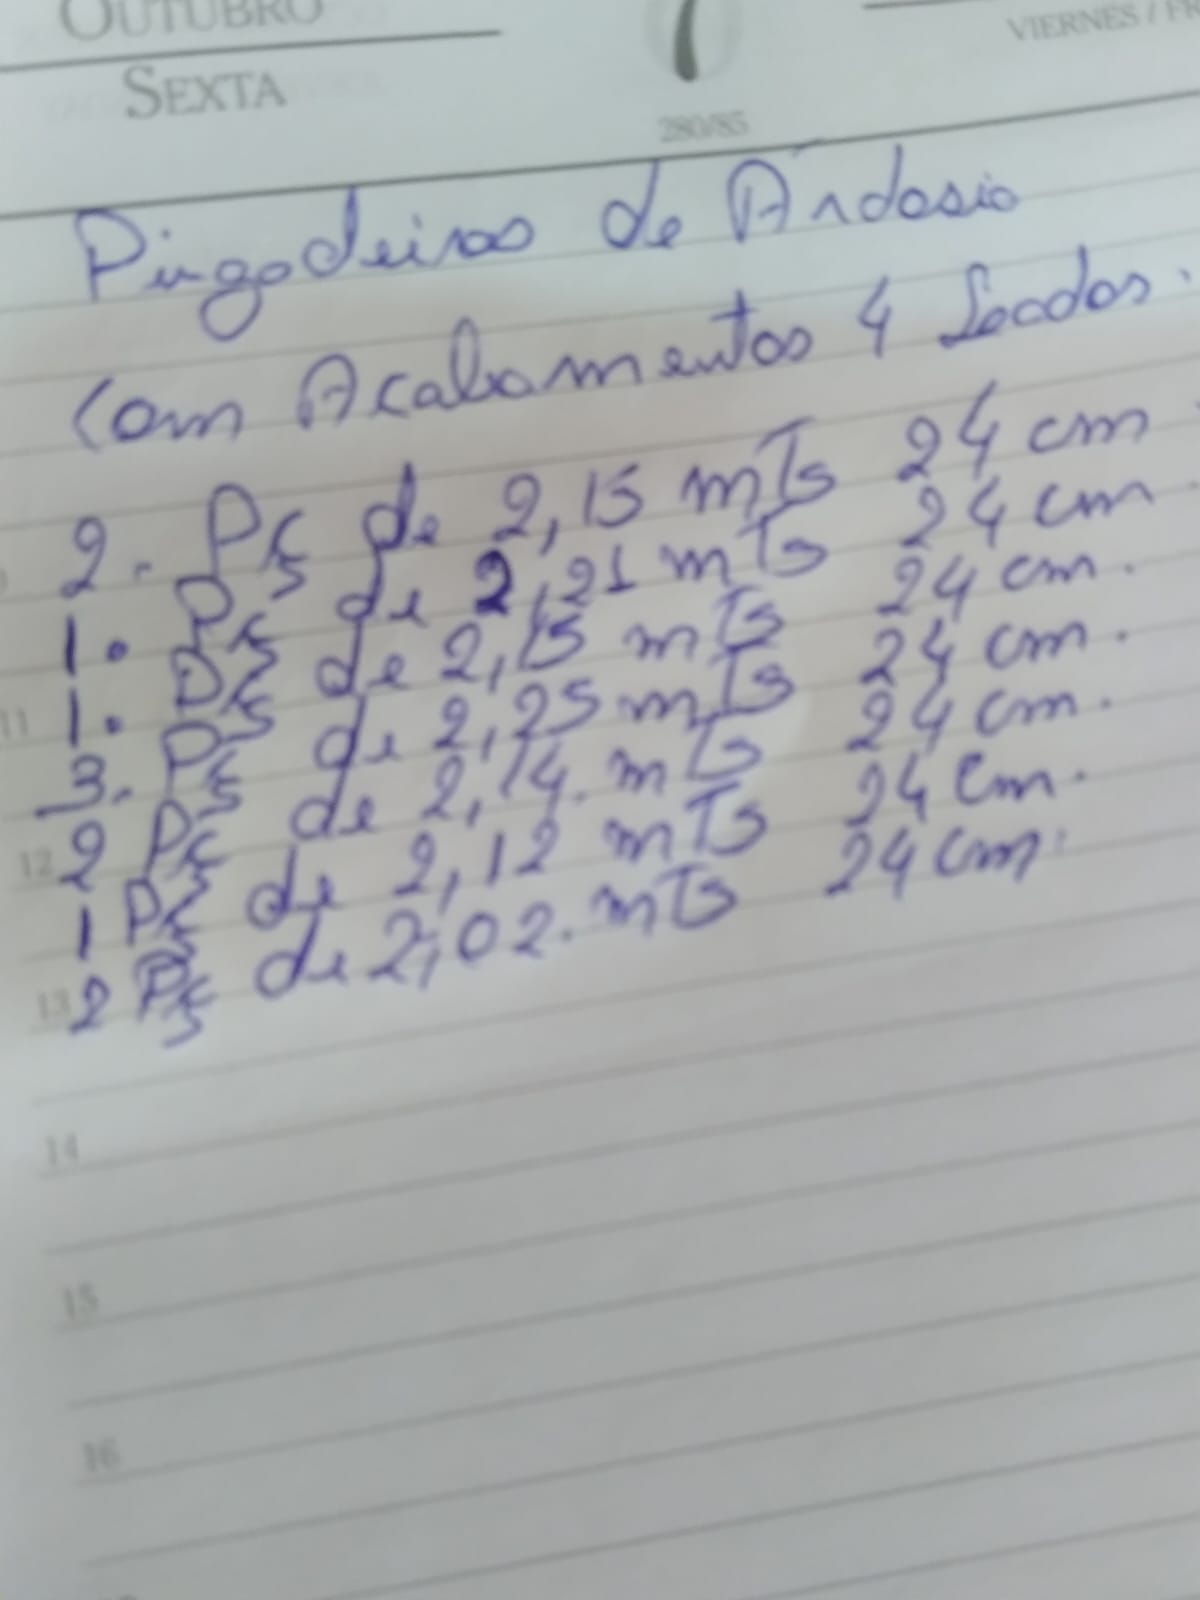 OUTUBRO
SEXTA
7
280/85
VIERNES / FR
Pingadeiras de Ardosia
Com Acabamentos 4 Lados.
2. Pç de 2,15 mTs 24 cm.
1. Pç de 2,21 mTs 24 cm.
1. Pç de 2,15 mTs 24 cm.
3. Pç de 2,25 mTs 24 cm.
2 Pç de 2,14. mTs 24 cm.
1 Pç de 2,12 mTs 24 cm.
2 Pç de 2,02. mTs 24 cm.
11
12
13
14
15
16